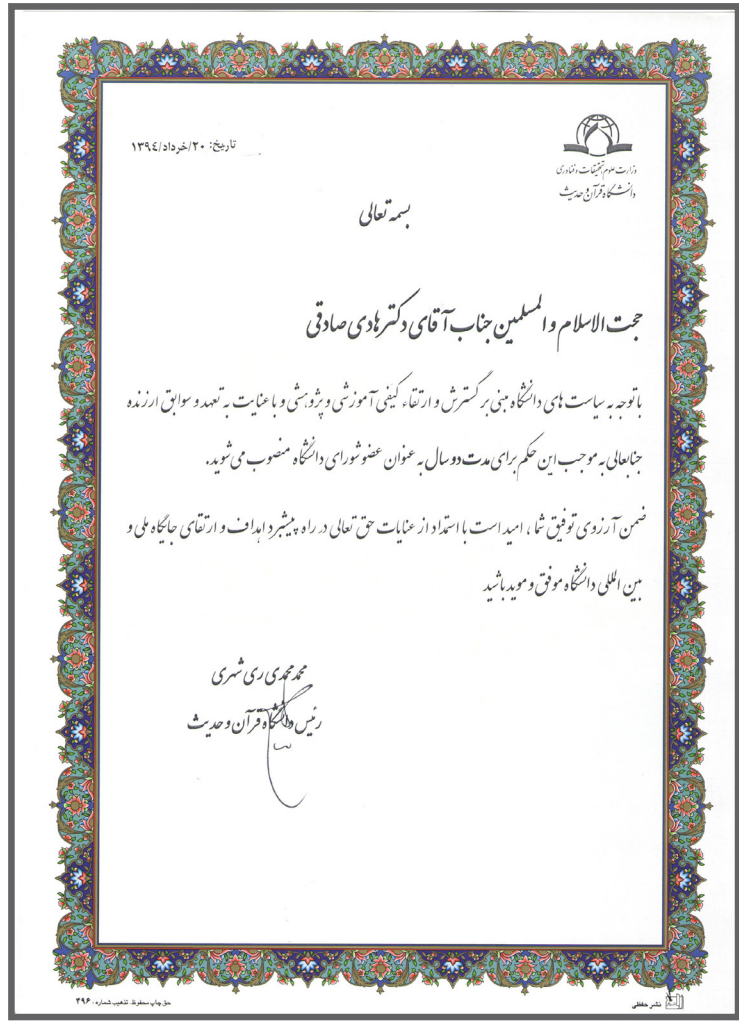 وزارت علوم تحقیقات و فناوری
دانشگاه قرآن و حدیث
تاریخ: ۲۰/خرداد/۱۳۹٤
بسمه تعالی
حجت الاسلام و المسلمین جناب آقای دکتر هادی صادقی
با توجه به سیاست های دانشگاه مبنی بر گسترش و ارتقاء کیفی آموزشی و پژوهشی و با عنایت به تعهد و سوابق ارزنده
جنابعالی به موجب این حکم برای مدت دو سال به عنوان عضو شورای دانشگاه منصوب می شوید.
ضمن آرزوی توفیق شما، امید است با استمداد از عنایات حق تعالی در راه پیشبرد اهداف و ارتقای جایگاه ملی و
بین المللی دانشگاه موفق و موید باشید
محمد محمدی ری شهری
رئیس دانشگاه قرآن و حدیث
نشر حفظی
حق چاپ محفوظ. تذهیب شماره: ۴۹۶